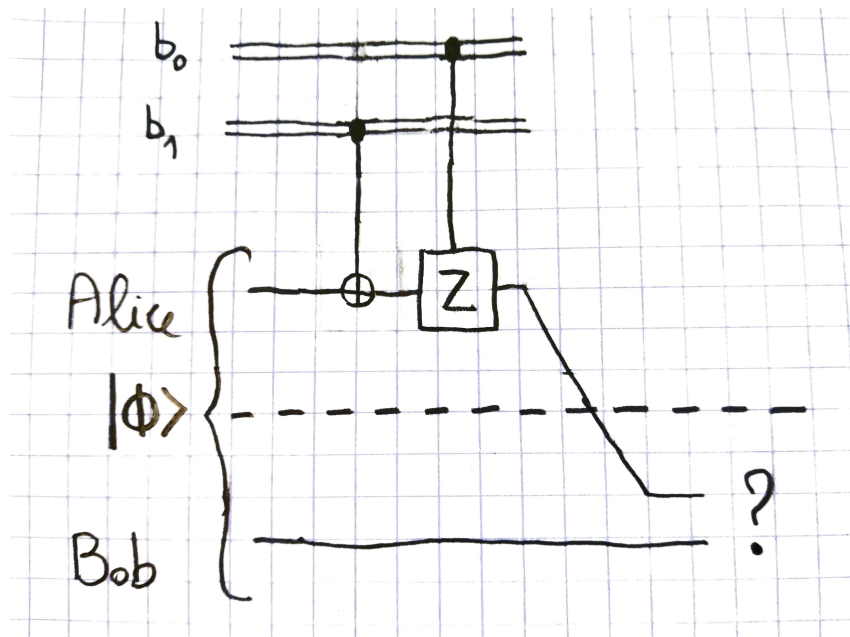 b₀
b₁
Alice
Z
|Φ⟩
?
Bob